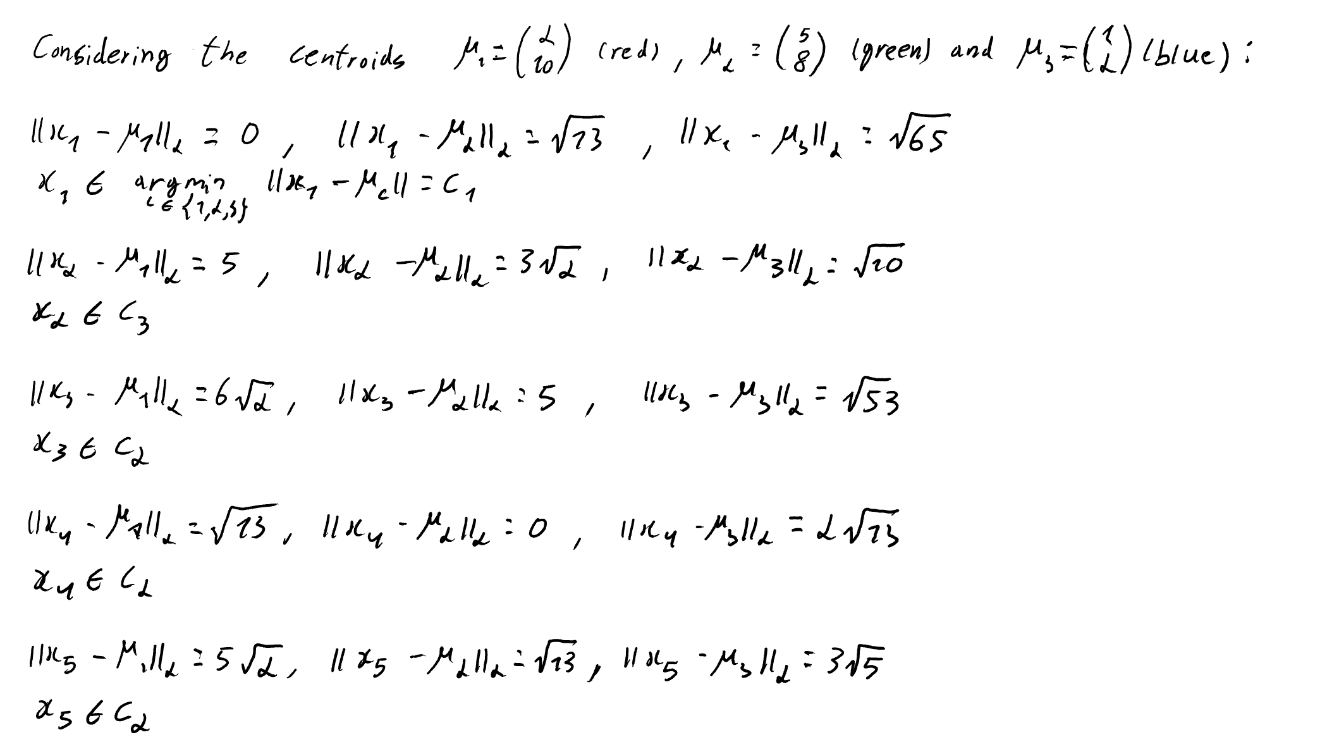 Considering the centroids μ₁ = (2 10) (red), μ₂ = (5 8) (green) and μ₃ = (1 2) (blue):
||x₁ - μ₁||₂ = 0, ||x₁ - μ₂||₂ = √13, ||x₁ - μ₃||₂ = √65
x₁ ∈ argmin ||x₁ - μ_c|| = C₁
c ∈ {1,2,3}
||x₂ - μ₁||₂ = 5, ||x₂ - μ₂||₂ = 3√2, ||x₂ - μ₃||₂ = √10
x₂ ∈ C₃
||x₃ - μ₁||₂ = 6√2, ||x₃ - μ₂||₂ = 5, ||x₃ - μ₃||₂ = √53
x₃ ∈ C₂
||x₄ - μ₁||₂ = √13, ||x₄ - μ₂||₂ = 0, ||x₄ - μ₃||₂ = 2√13
x₄ ∈ C₂
||x₅ - μ₁||₂ = 5√2, ||x₅ - μ₂||₂ = √13, ||x₅ - μ₃||₂ = 3√5
x₅ ∈ C₂